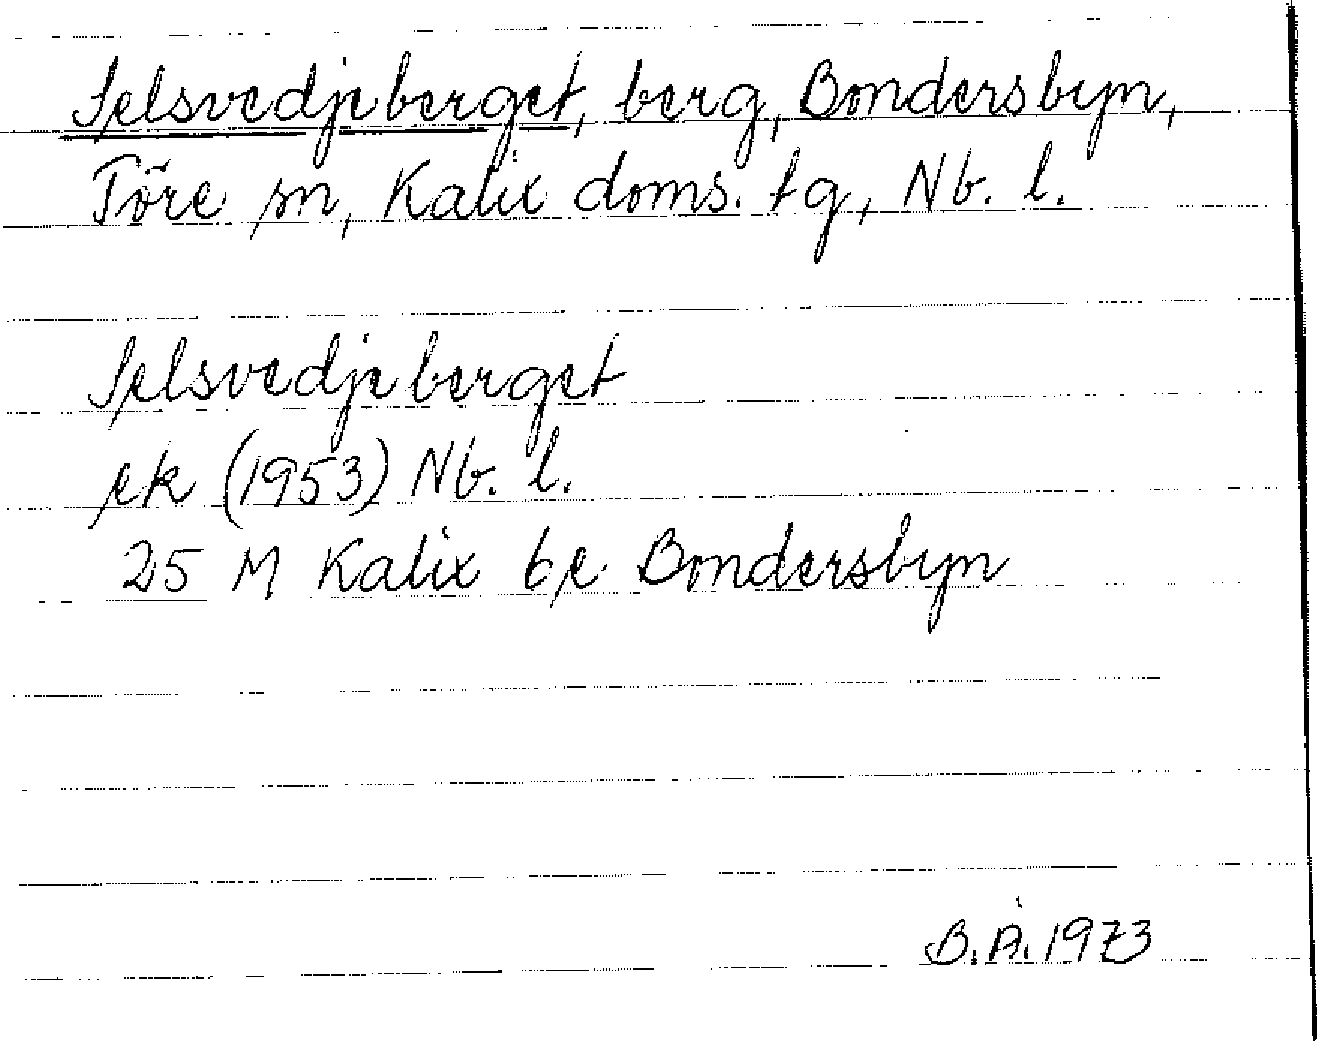 Selsvedjeberget, berg, Bondersbyn,
Töre sn, Kalix doms. tg, Nb. l.
Selsvedjeberget
ek (1953) Nb. l.
25 M Kalix 6e Bondersbyn
B.Å. 1973